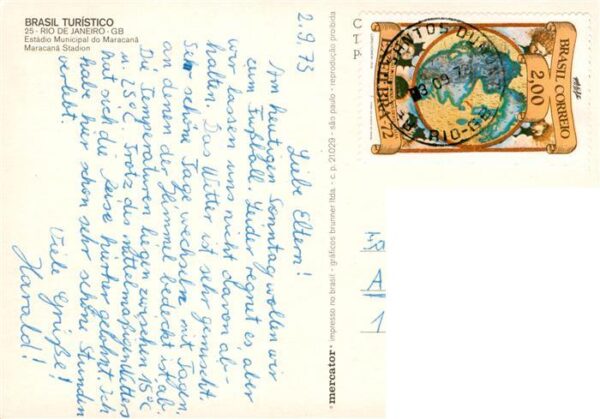 BRASIL TURÍSTICO
25 - RIO DE JANEIRO - GB
Estádio Municipal do Maracanã
Maracanã Stadion
2.9.73
Liebe Eltern!
Am heutigen Sonntag wollen wir
zum Fußball. Leider regnet es aber
wir lassen uns nicht davon ab-
halten. Das Wetter ist sehr gemischt
Sehr schöne Tage wechseln mit Tagen,
an denen der Himmel bedeckt ist ab.
Die Temperaturen liegen zwischen 15°C
u. 25°C. Trotz des mittelmäßigen Wetters
hat sich die Reise hierher gelohnt. Ich
habe hier schon sehr schöne Stunden
verlebt.
Viele Grüße!
Harald!
mercator® impresso no brasil - gráficos brunner ltda. - c. p. 21029 - são paulo - reprodução proibida
C
T
P
BRASIL CORREIO
2,00
72
SANTOS DUMONT
03.09.73
RIO-GB
A
1